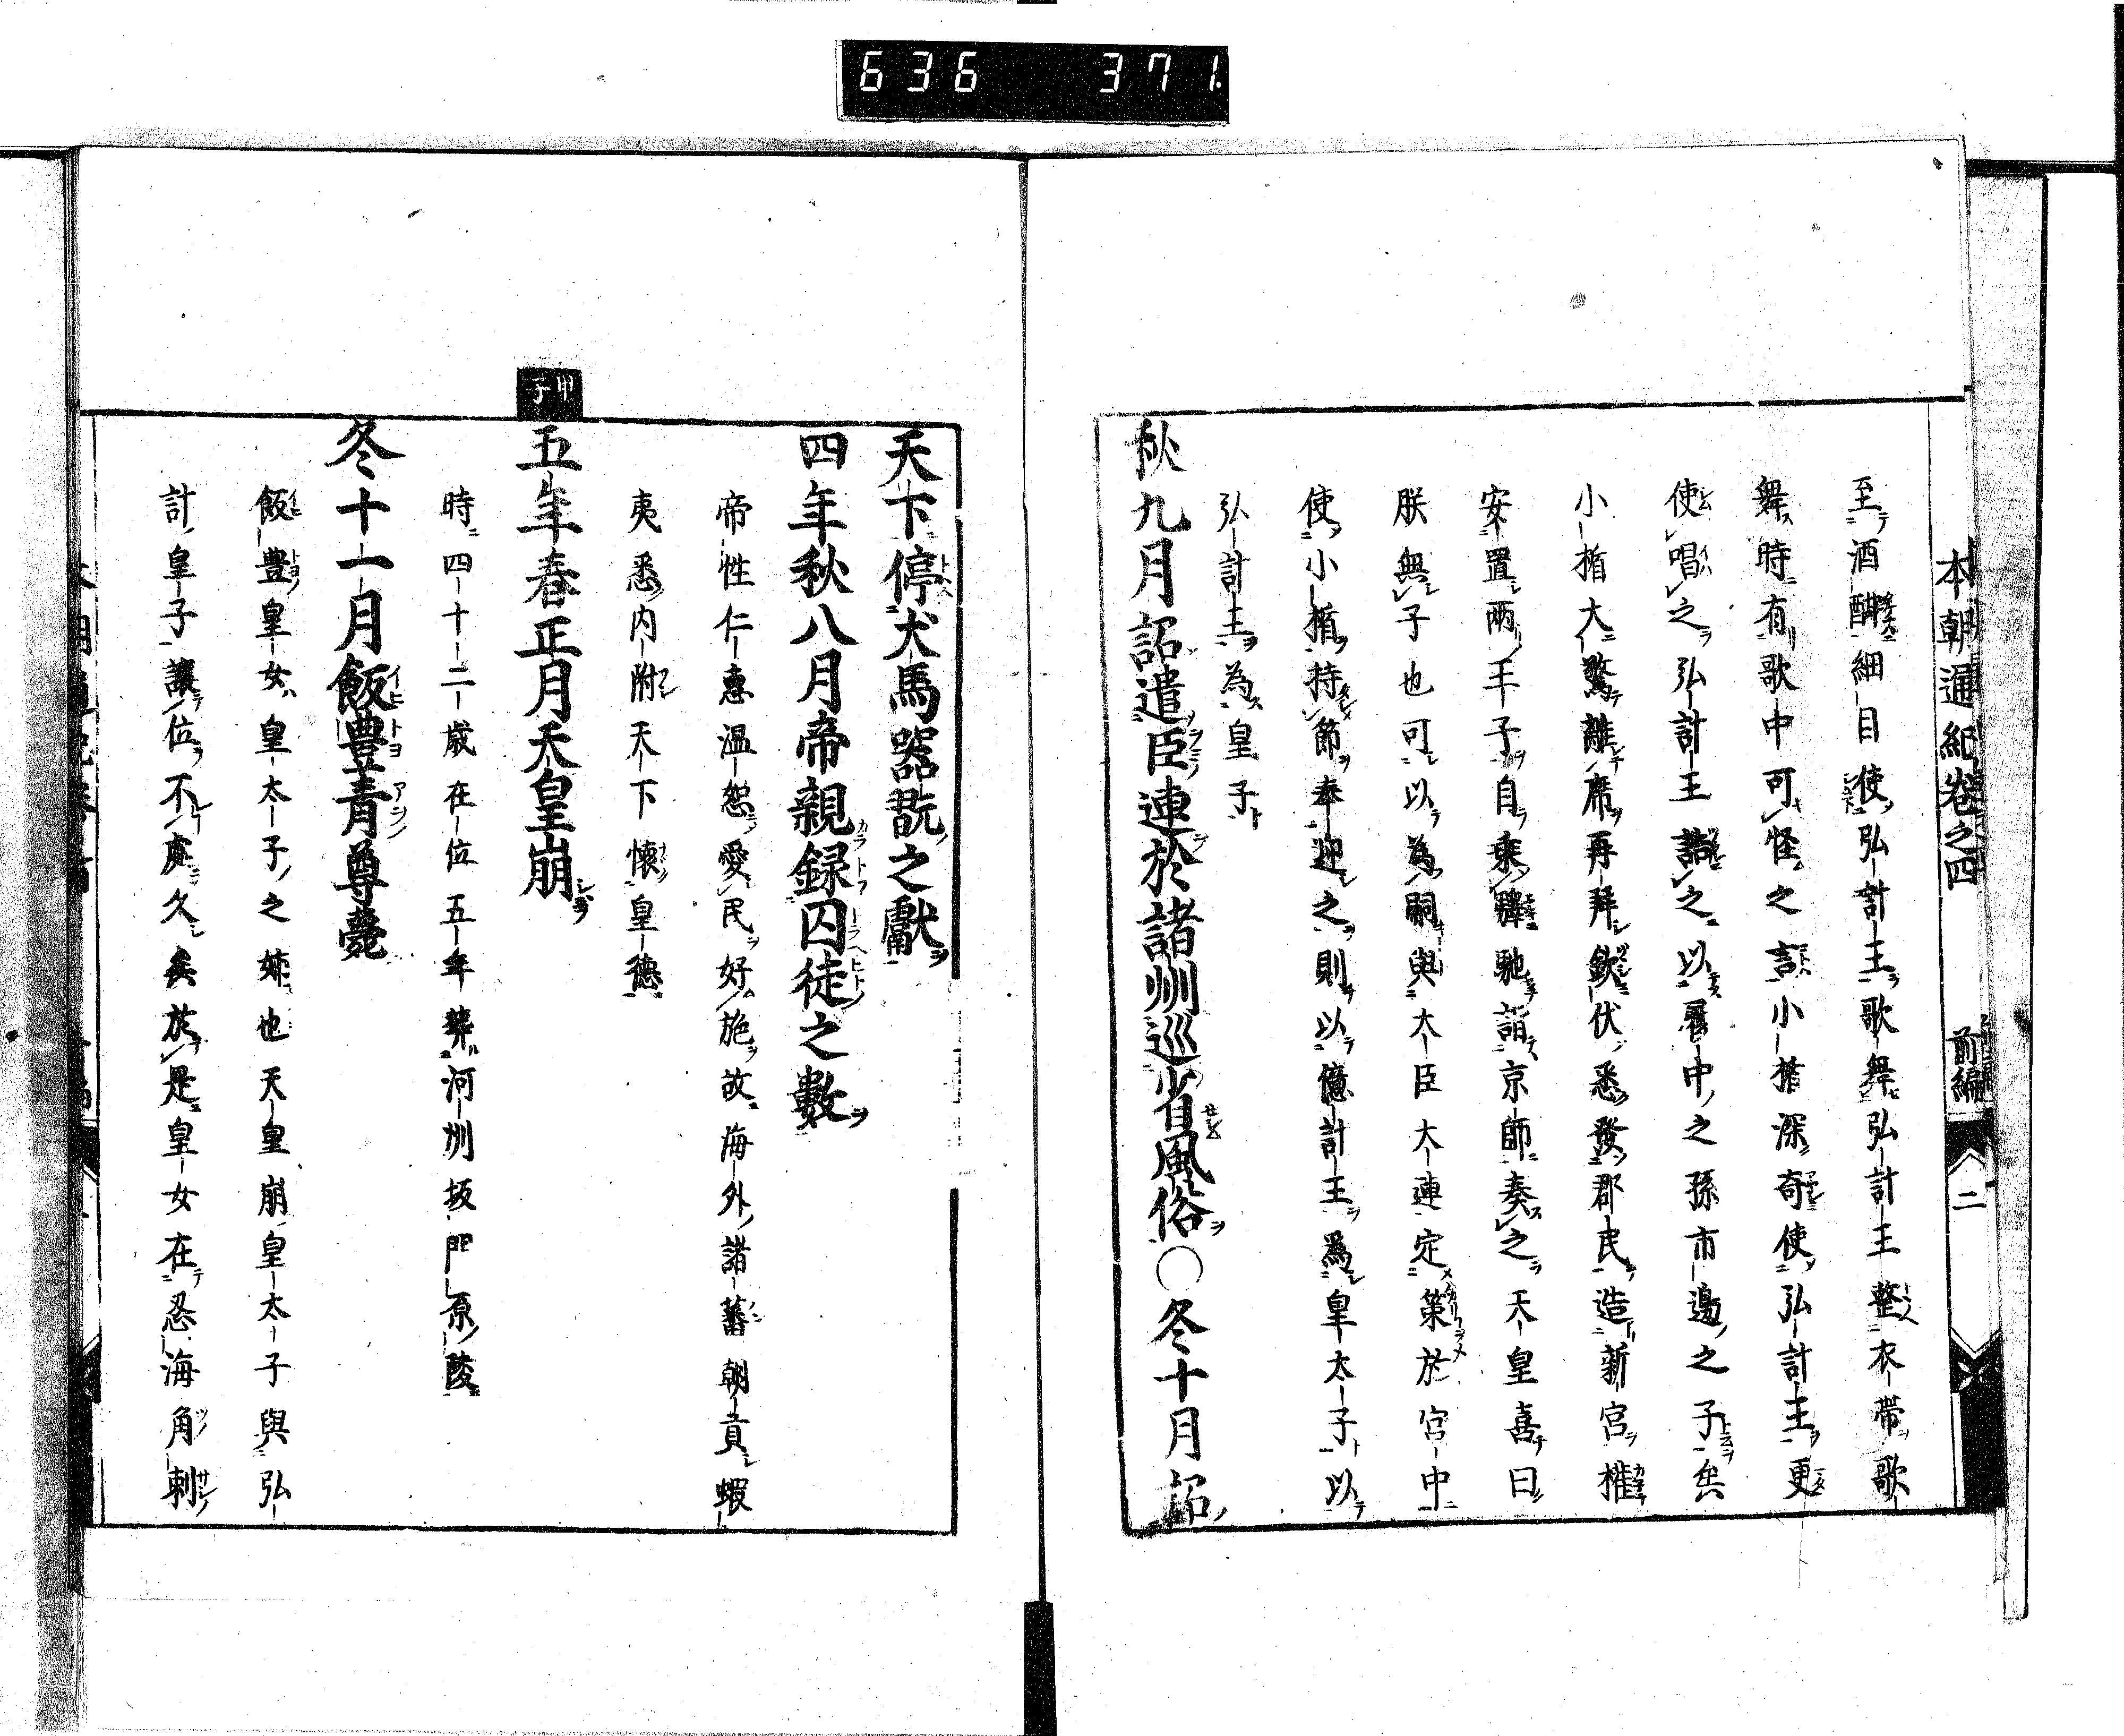 636 371.
本朝通紀卷之四 前編 二
至酒酣細目使弘計王歌舞弘計王整衣帶歌
舞時有歌中可怪之言小楯深奇使弘計王更
使唱之弘計王誥之以履中之孫市邊之子矣
小楯大驚離席再拜欽伏悉發郡民造新宮權
安置兩王子自乘驛馳詣京師奏之天皇喜曰
朕無子也可以為嗣與大臣大連定策於宮中
使小楯持節奉迎之則以億計王爲皇太子以
弘計王為皇子
秋九月詔遣臣連於諸州巡省風俗○冬十月詔
天下停犬馬器翫之獻
四年秋八月帝親録囚徒之數
帝性仁惠温恕愛民好施故海外諸蕃朝貢蝦
夷悉内附天下懷皇德
甲子
五年春正月天皇崩
時四十二歳在位五年葬河州坂門原陵
冬十一月飯豊青尊薨
飯豊皇女皇太子之姉也天皇崩皇太子與弘
計皇子讓位不處久矣於是皇女在忍海角刺